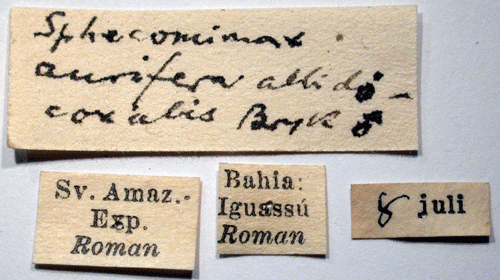 Sphecomimax
aurifera albido-
coxalis Bryk ♂
Sv. Amaz.-
Exp.
Roman
Bahia:
Iguassú
Roman
8 juli